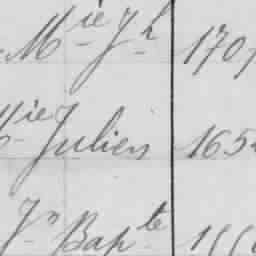 Mie Jh 170
Mie Julien 165
Jn Bapte 166